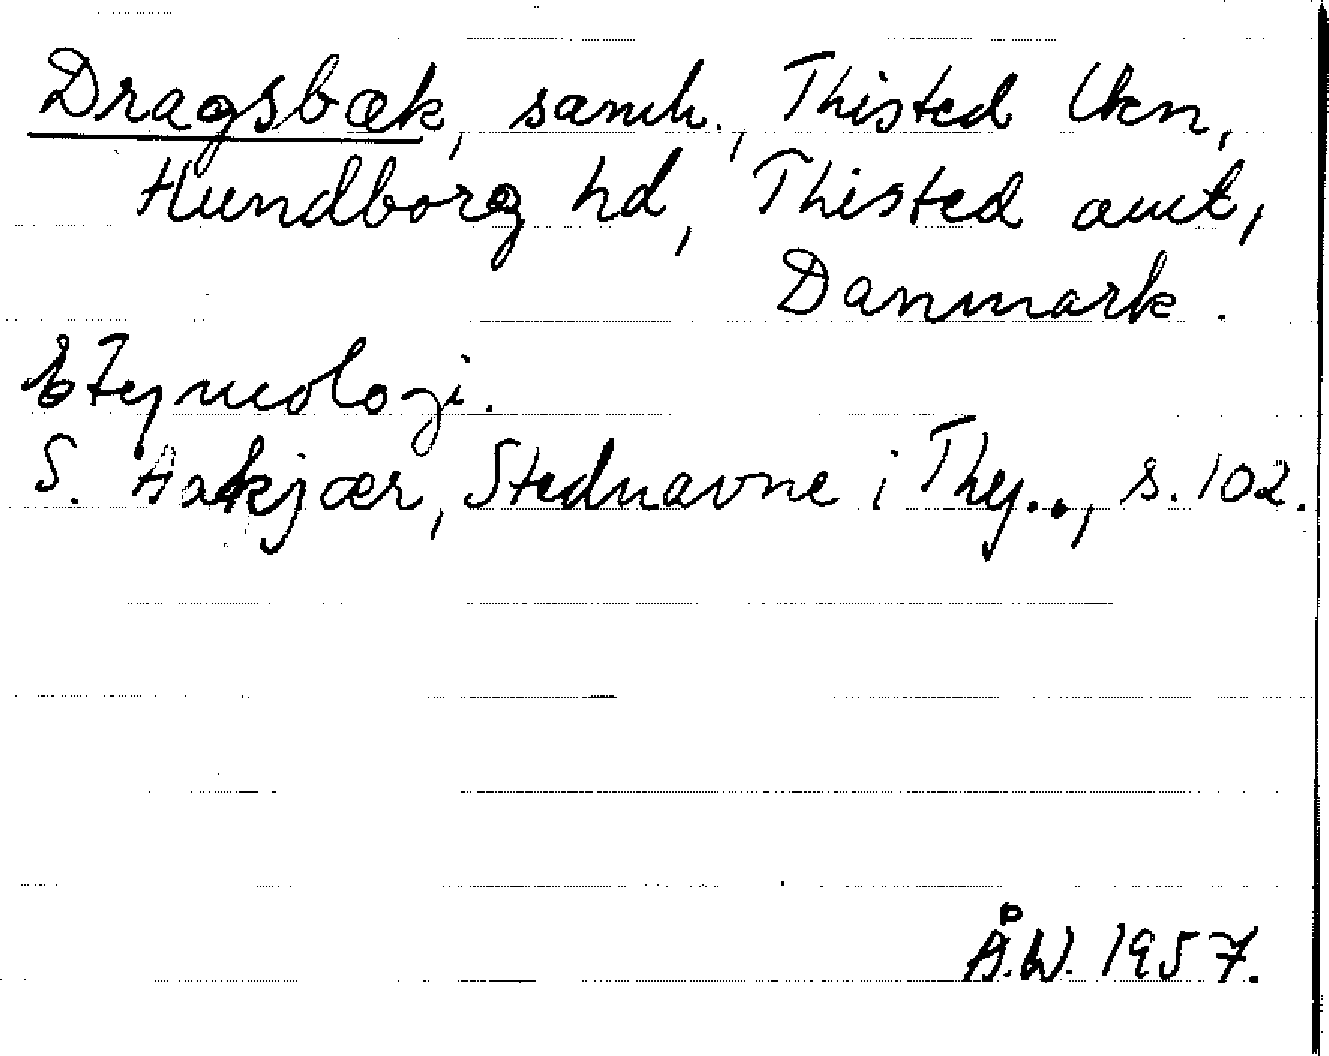 Dragsbæk, samh., Thisted lkn,
Hundborg hd, Thisted amt,
Danmark.
Etymologi.
S. Aakjær, Stednavne i Thy.., s. 102.
Å.W. 1957.